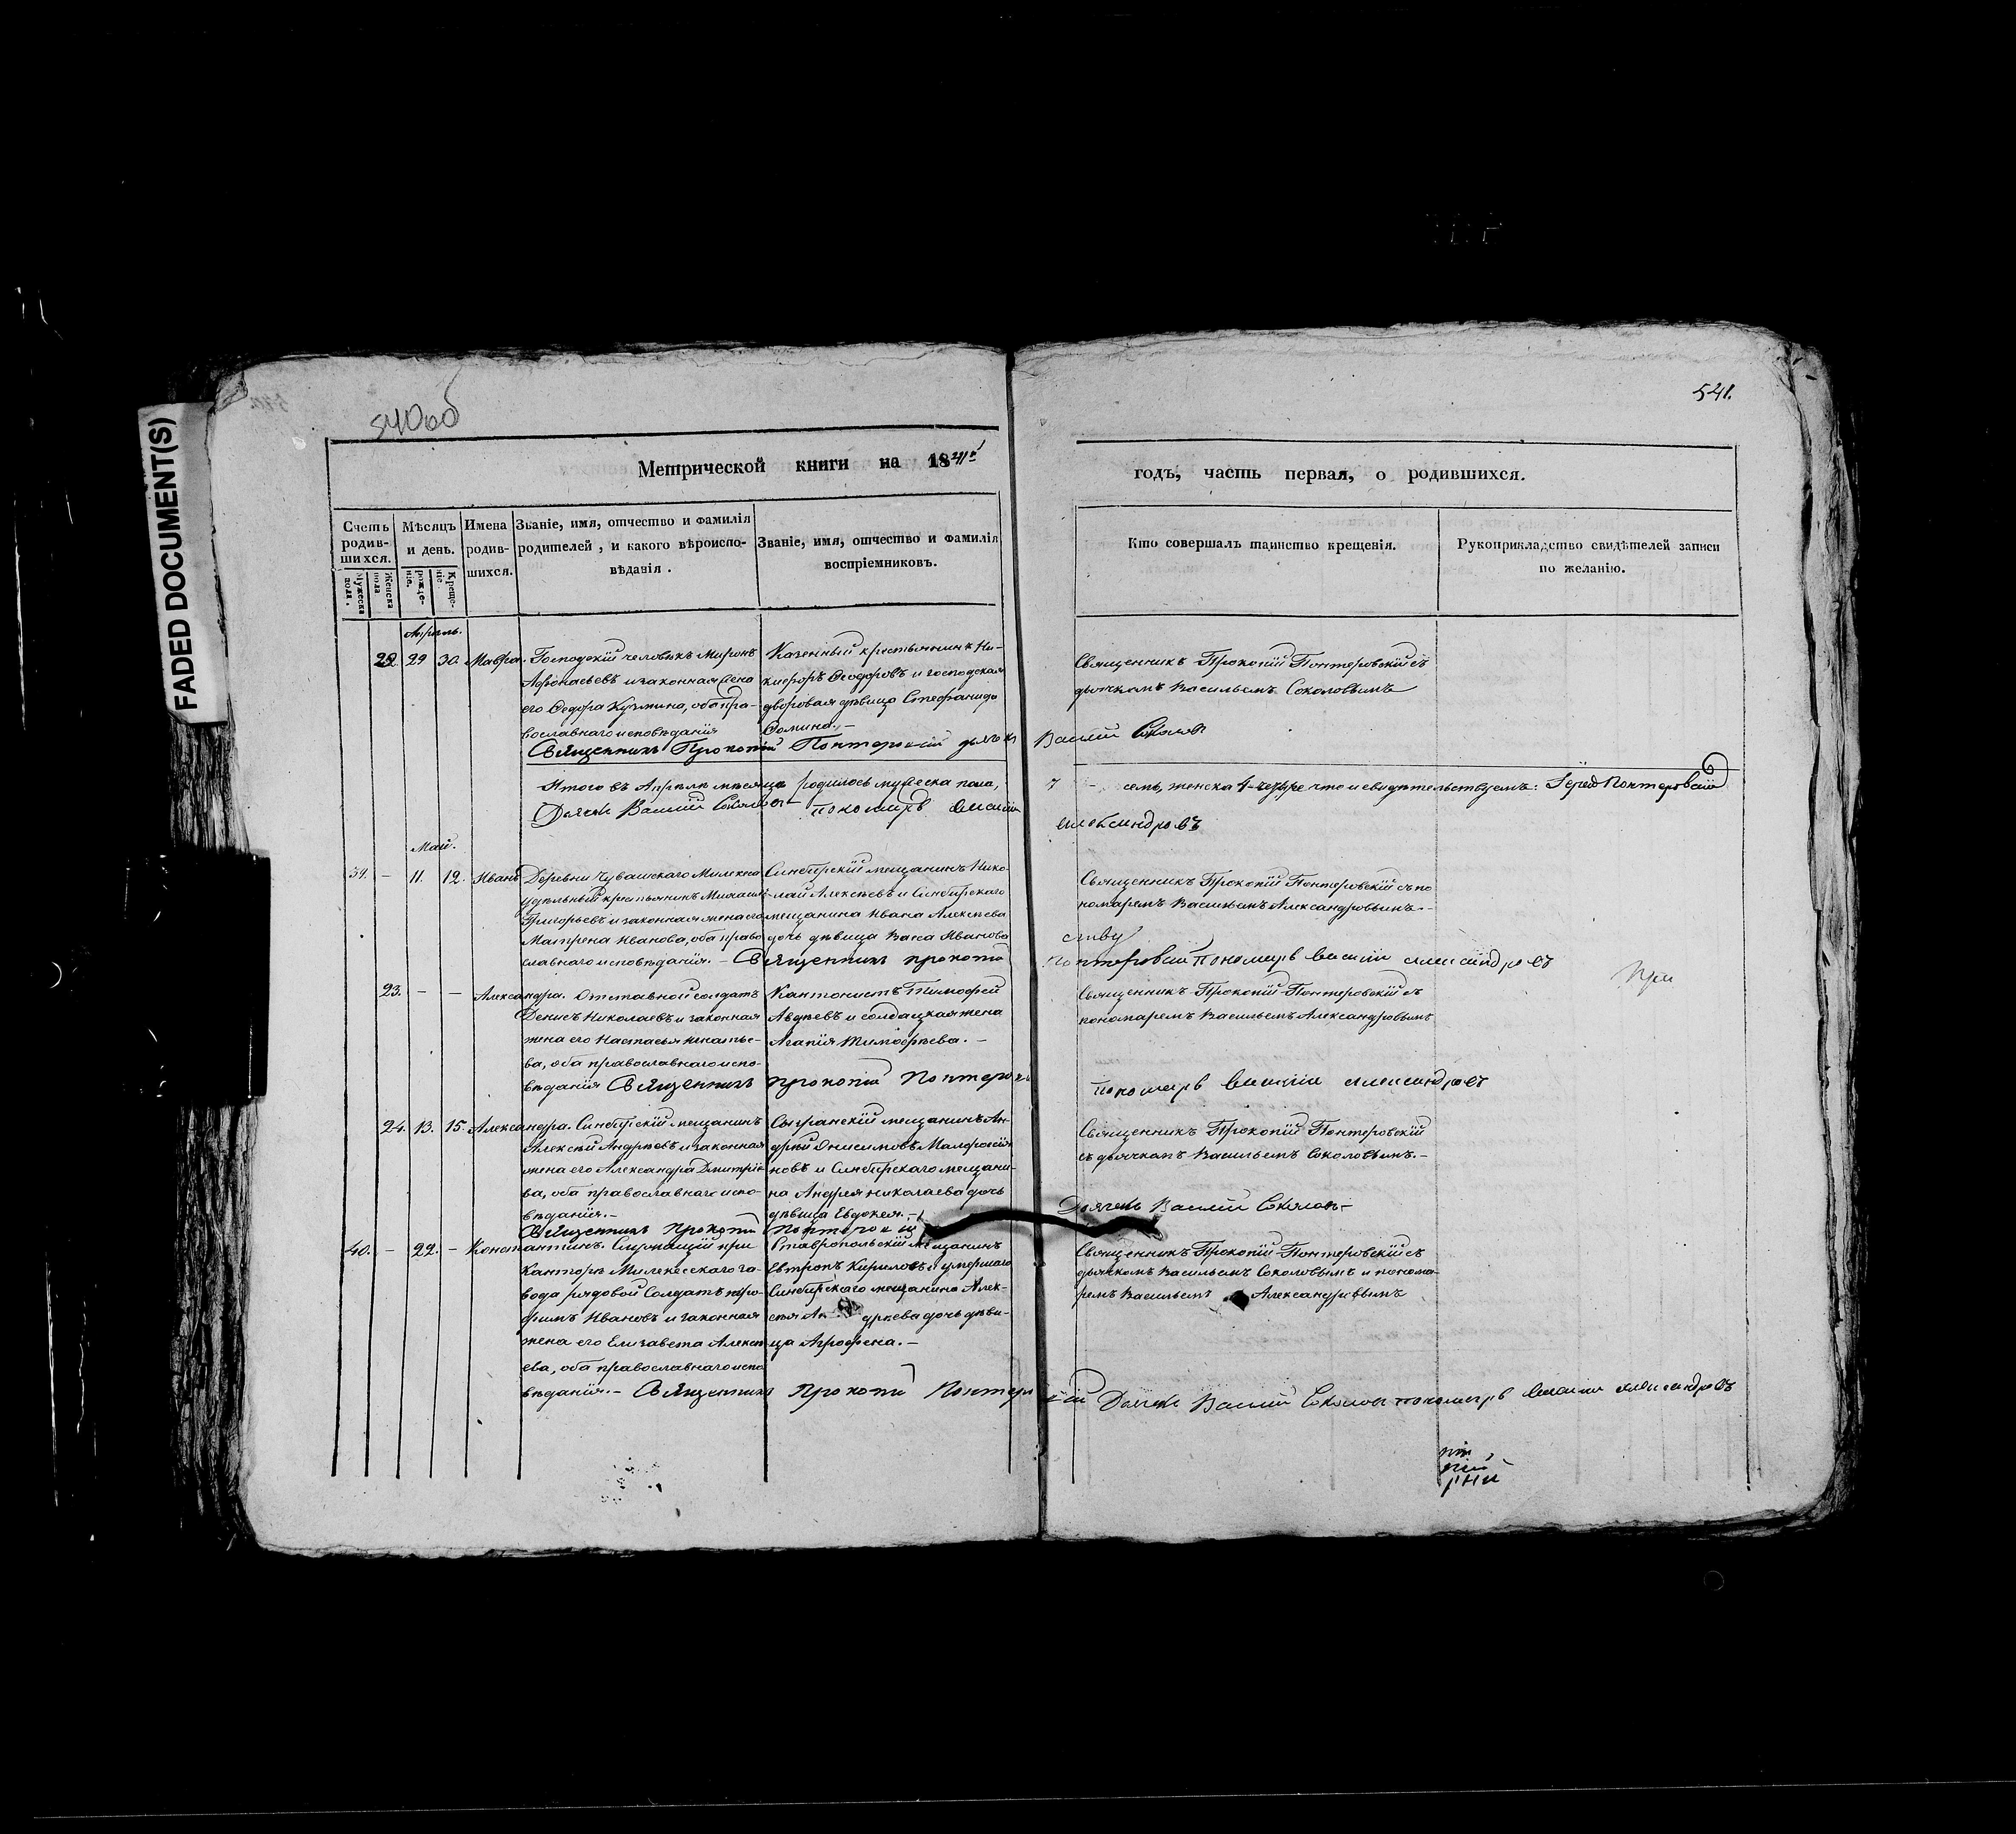 FADED DOCUMENT(S)
540об
541.
Метрической книги на 1841й
годъ, часть первая, о родившихся.
Счетъ родив-шихся.
Мужеска пола.
Женска пола
Мѣсяцъ и день.
рожде-нiе.
Креще-нiе
Имена родив-шихся.
Званiе, имя, отчество и фамилiя
родителей, и какого вѣроиспо-
вѣданiя.
Званiе, имя, отчество и фамилiя
воспрiемниковъ.
Кто совершалъ таинство крещенiя.
Рукоприкладство свидѣтелей записи
по желанiю.
Апрѣль.
22. 29 30. Мавра.
Господскiй человѣкъ Миронъ
Афонасьевъ и законная жена
его Федора Кузмина, оба пра-
вославнаго исповѣданiя
Казенный крестьянинъ Ни-
кифоръ Федоровъ и господская
дворовая дѣвица Стефанида
Фомина.-
Священникъ Прокопiй Понтеровскiй съ
дьячкомъ Васильемъ Соколовымъ
Священникъ Прокопiй Понтеровскiй дьячекъ
Василiй Соколовъ
Итого въ Апрѣлѣ мѣсяцѣ родилось мужеска пола,
7 - семь, женска 4-четыре что и свидѣтельствуемъ: Iерей Понтеровскiй
Дьячекъ Василiй Соколовъ пономарь Василiй
Александровъ
Май.
39. - 11. 12. Иванъ
Деревни Чувашскаго Мелекеса
удѣльный крестьянинъ Михаилъ
Григорьевъ и законная жена его
Матрена Иванова, оба право
славнаго исповѣданiя. -
Синбирскiй мещанинъ Нико-
лай Алексѣевъ и Синбирскаго
мещанина Ивана Алексѣева
дочь дѣвица Васса Иванова
Священникъ Прокопiй Понтеровскiй съ по
номаремъ Васильемъ Александровымъ.-
Священникъ Прокопiй
Понтеровскiй Пономарь Василiй Александровъ
При
23. - - Александра.
Отставной солдатъ
Денисъ Николаевъ и законная
жена его Настасья Игнатье-
ва, оба православнаго испо-
вѣданiя
Кантонистъ Тимофей
Авдѣевъ и солдацкая жена
Агапiя Тимофѣева. -
Священникъ Прокопiй Понтеровскiй съ
пономаремъ Васильемъ Александровымъ
Священникъ Прокопiй Понтеровскiй
пономарь Василiй Александровъ
24. 13. 15. Александра.
Синбирскiй мещанинъ
Алексѣй Андрѣевъ и законная
жена его Александра Дмитрiе-
ва, оба православнаго испо-
вѣданiя.-
Сызранскiй мещанинъ Ан-
дрѣй Онисимовъ
новъ и Синбирскаго мещани-
на Андрея Николаева дочь
дѣвица Евдокея.-
Священникъ Прокопiй Понтеровскiй
съ дьячкомъ Васильемъ Соколовымъ.-
Священникъ Прокопiй Понтеровскiй
Дьячекъ Василiй Соколовъ
40. - 22. - Константинъ.
Служащiй при
Канторѣ Мелекесскаго за-
вода рядовой Солдатъ Тро-
фимъ Ивановъ и законная
жена его Елизавета Алексѣ
ева, оба православнаго испо
вѣданiя.-
Ставропольскiй мещанинъ
Евтропъ Кириловъ и умершаго
Синбирскаго мещанина Алек-
сѣя Андрѣева дочь дѣви-
ца Агрофена.-
Священникъ Прокопiй Понтеровскiй съ
дьячкомъ Васильемъ Соколовымъ и понома-
ремъ Васильемъ Александровымъ
Священникъ Прокопiй Понтеровскiй Дьячекъ Василiй Соколовъ пономарь Василiй Александровъ